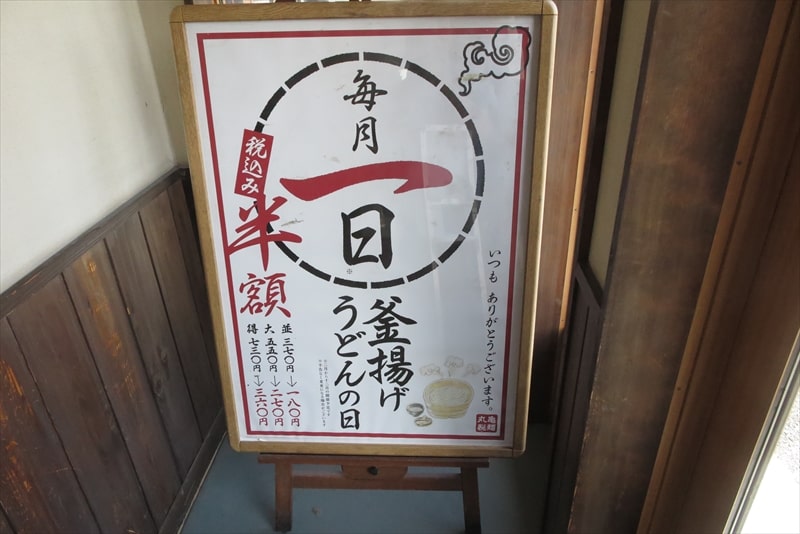 いつも ありがとうございます。
毎月
一
日
※
釜揚げ
うどんの日
税込み
半額
並 三七〇円→一八〇円
大 五五〇円→二七〇円
得 七三〇円→三六〇円
丸亀
製麺